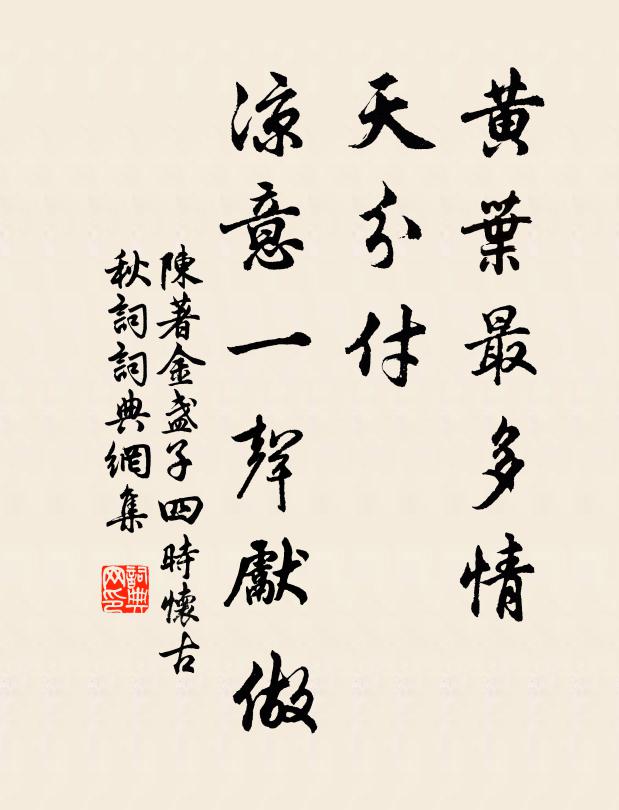 黃葉最多情
天分付
凉意一聲獻做
陳著金盞子四時懷古
秋詞詞典網集
詞典
网印